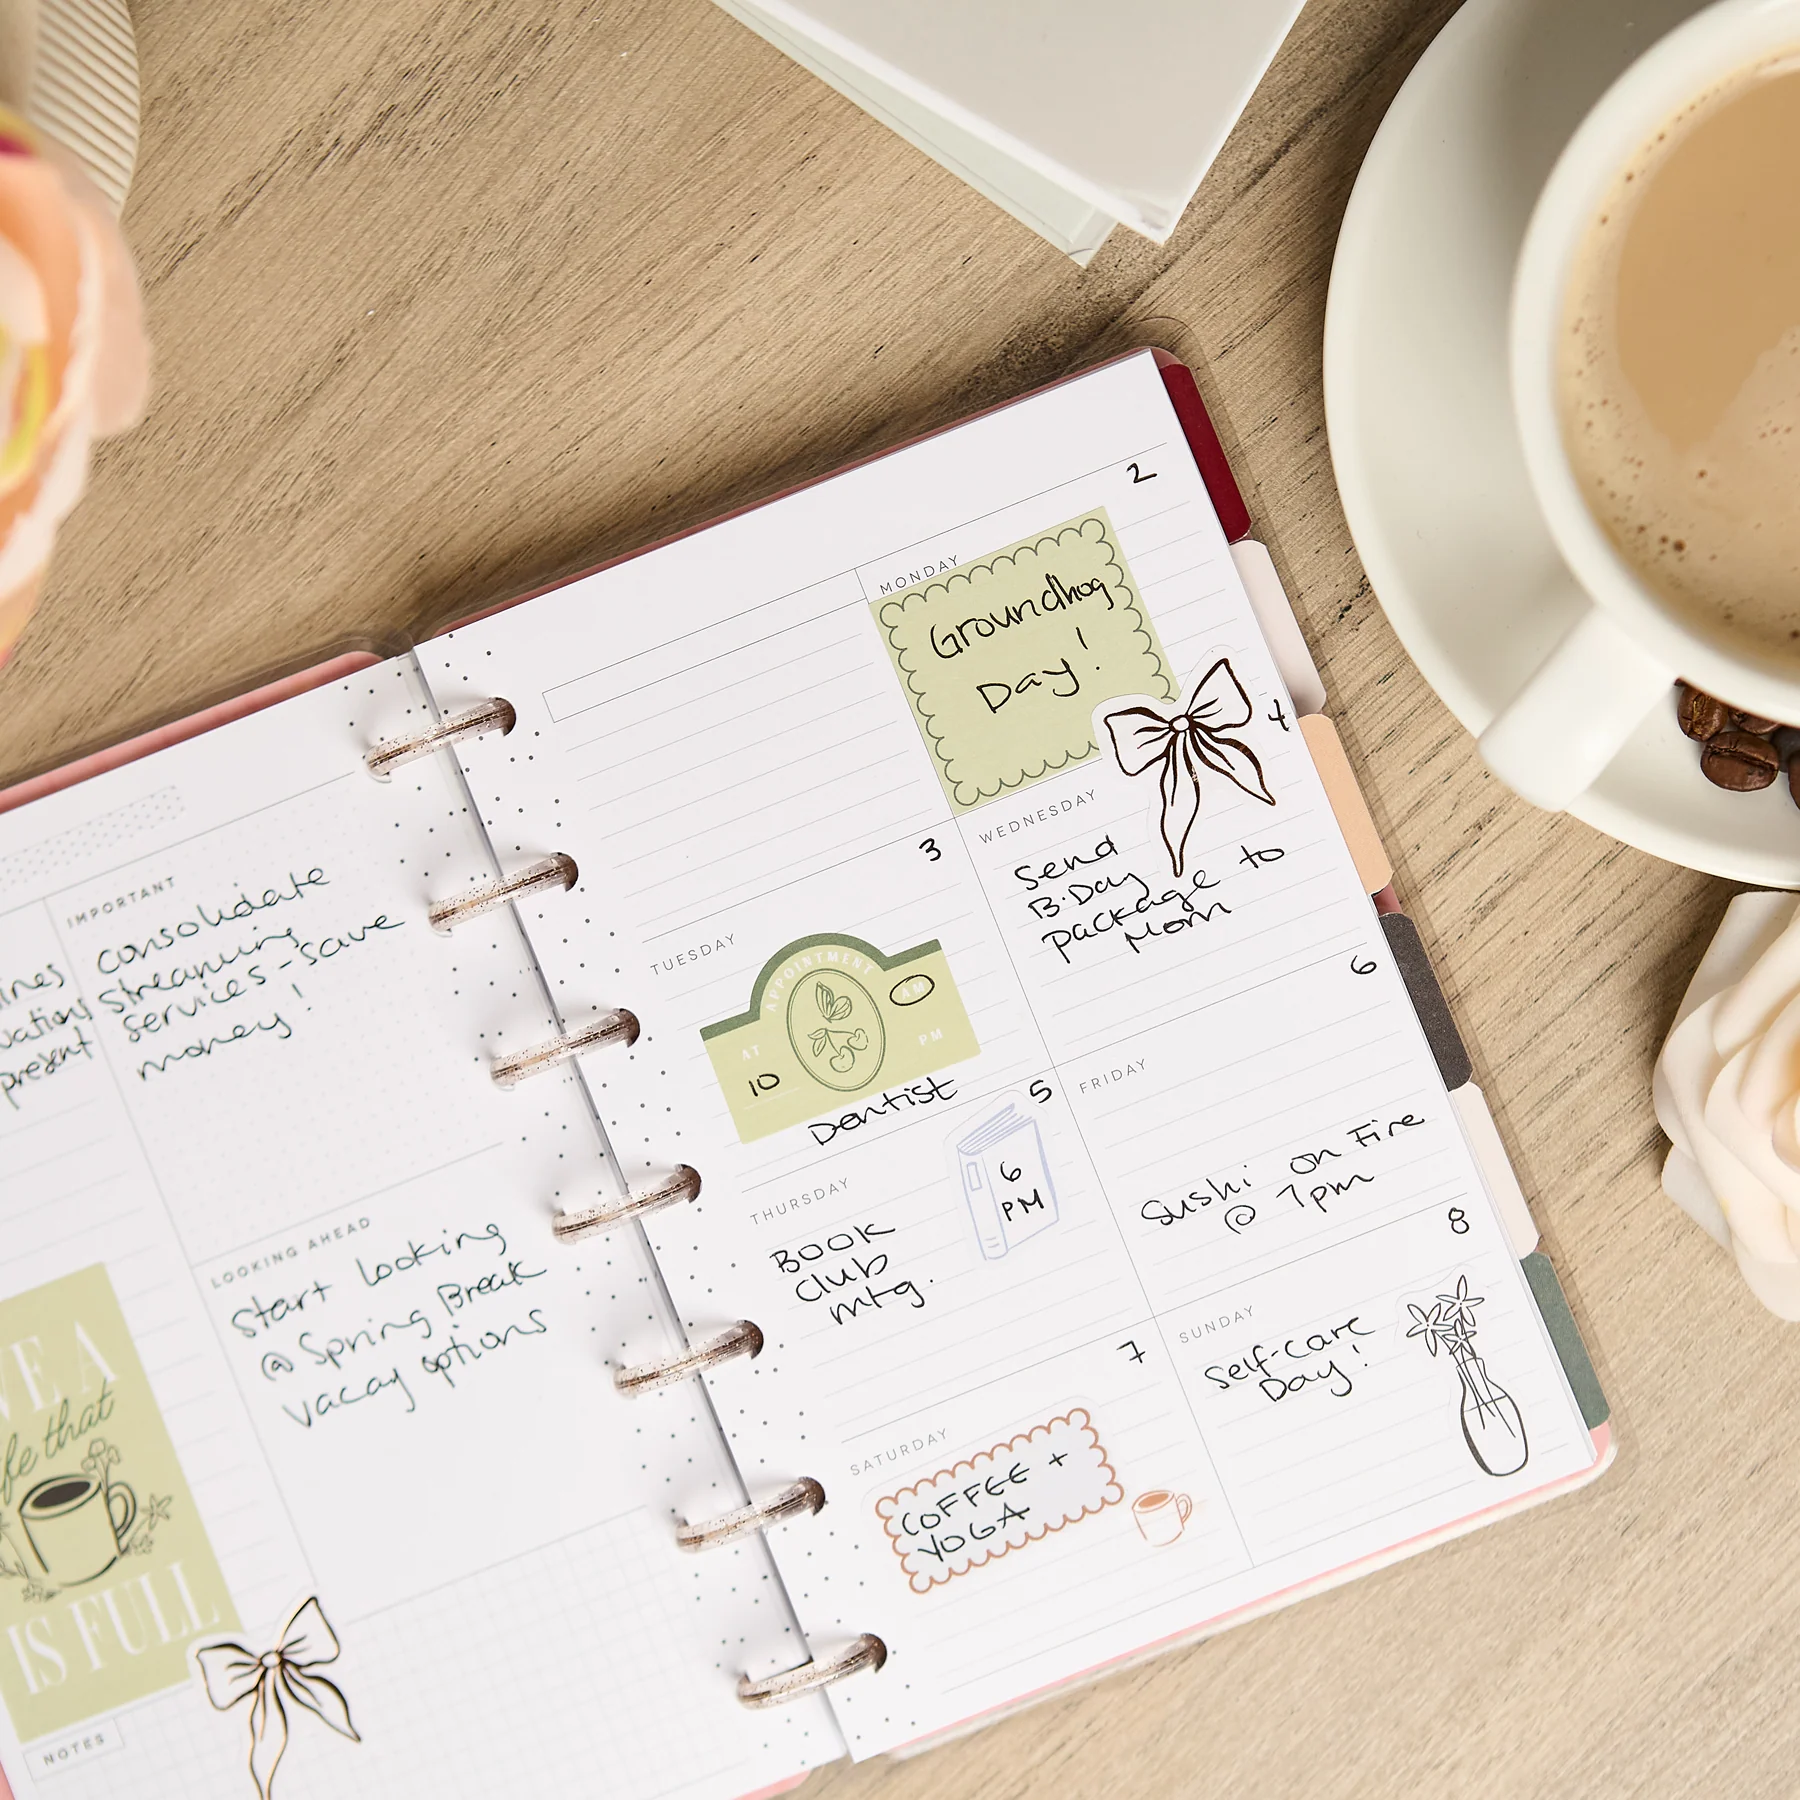 IMPORTANT
consolidate
streaming
services - save
money!
present
LOOKING AHEAD
Start looking
@ Spring Break
vacay options
A
that
IS FULL
NOTES
2
MONDAY
Groundhog
Day!
3
TUESDAY
APPOINTMENT
AM
AT
PM
10
Dentist
4
WEDNESDAY
Send
B.Day
package to
Mom
5
THURSDAY
6
PM
Book
Club
mtg.
6
FRIDAY
Sushi on Fire
@ 7pm
7
SATURDAY
COFFEE +
YOGA
8
SUNDAY
Self-care
Day!